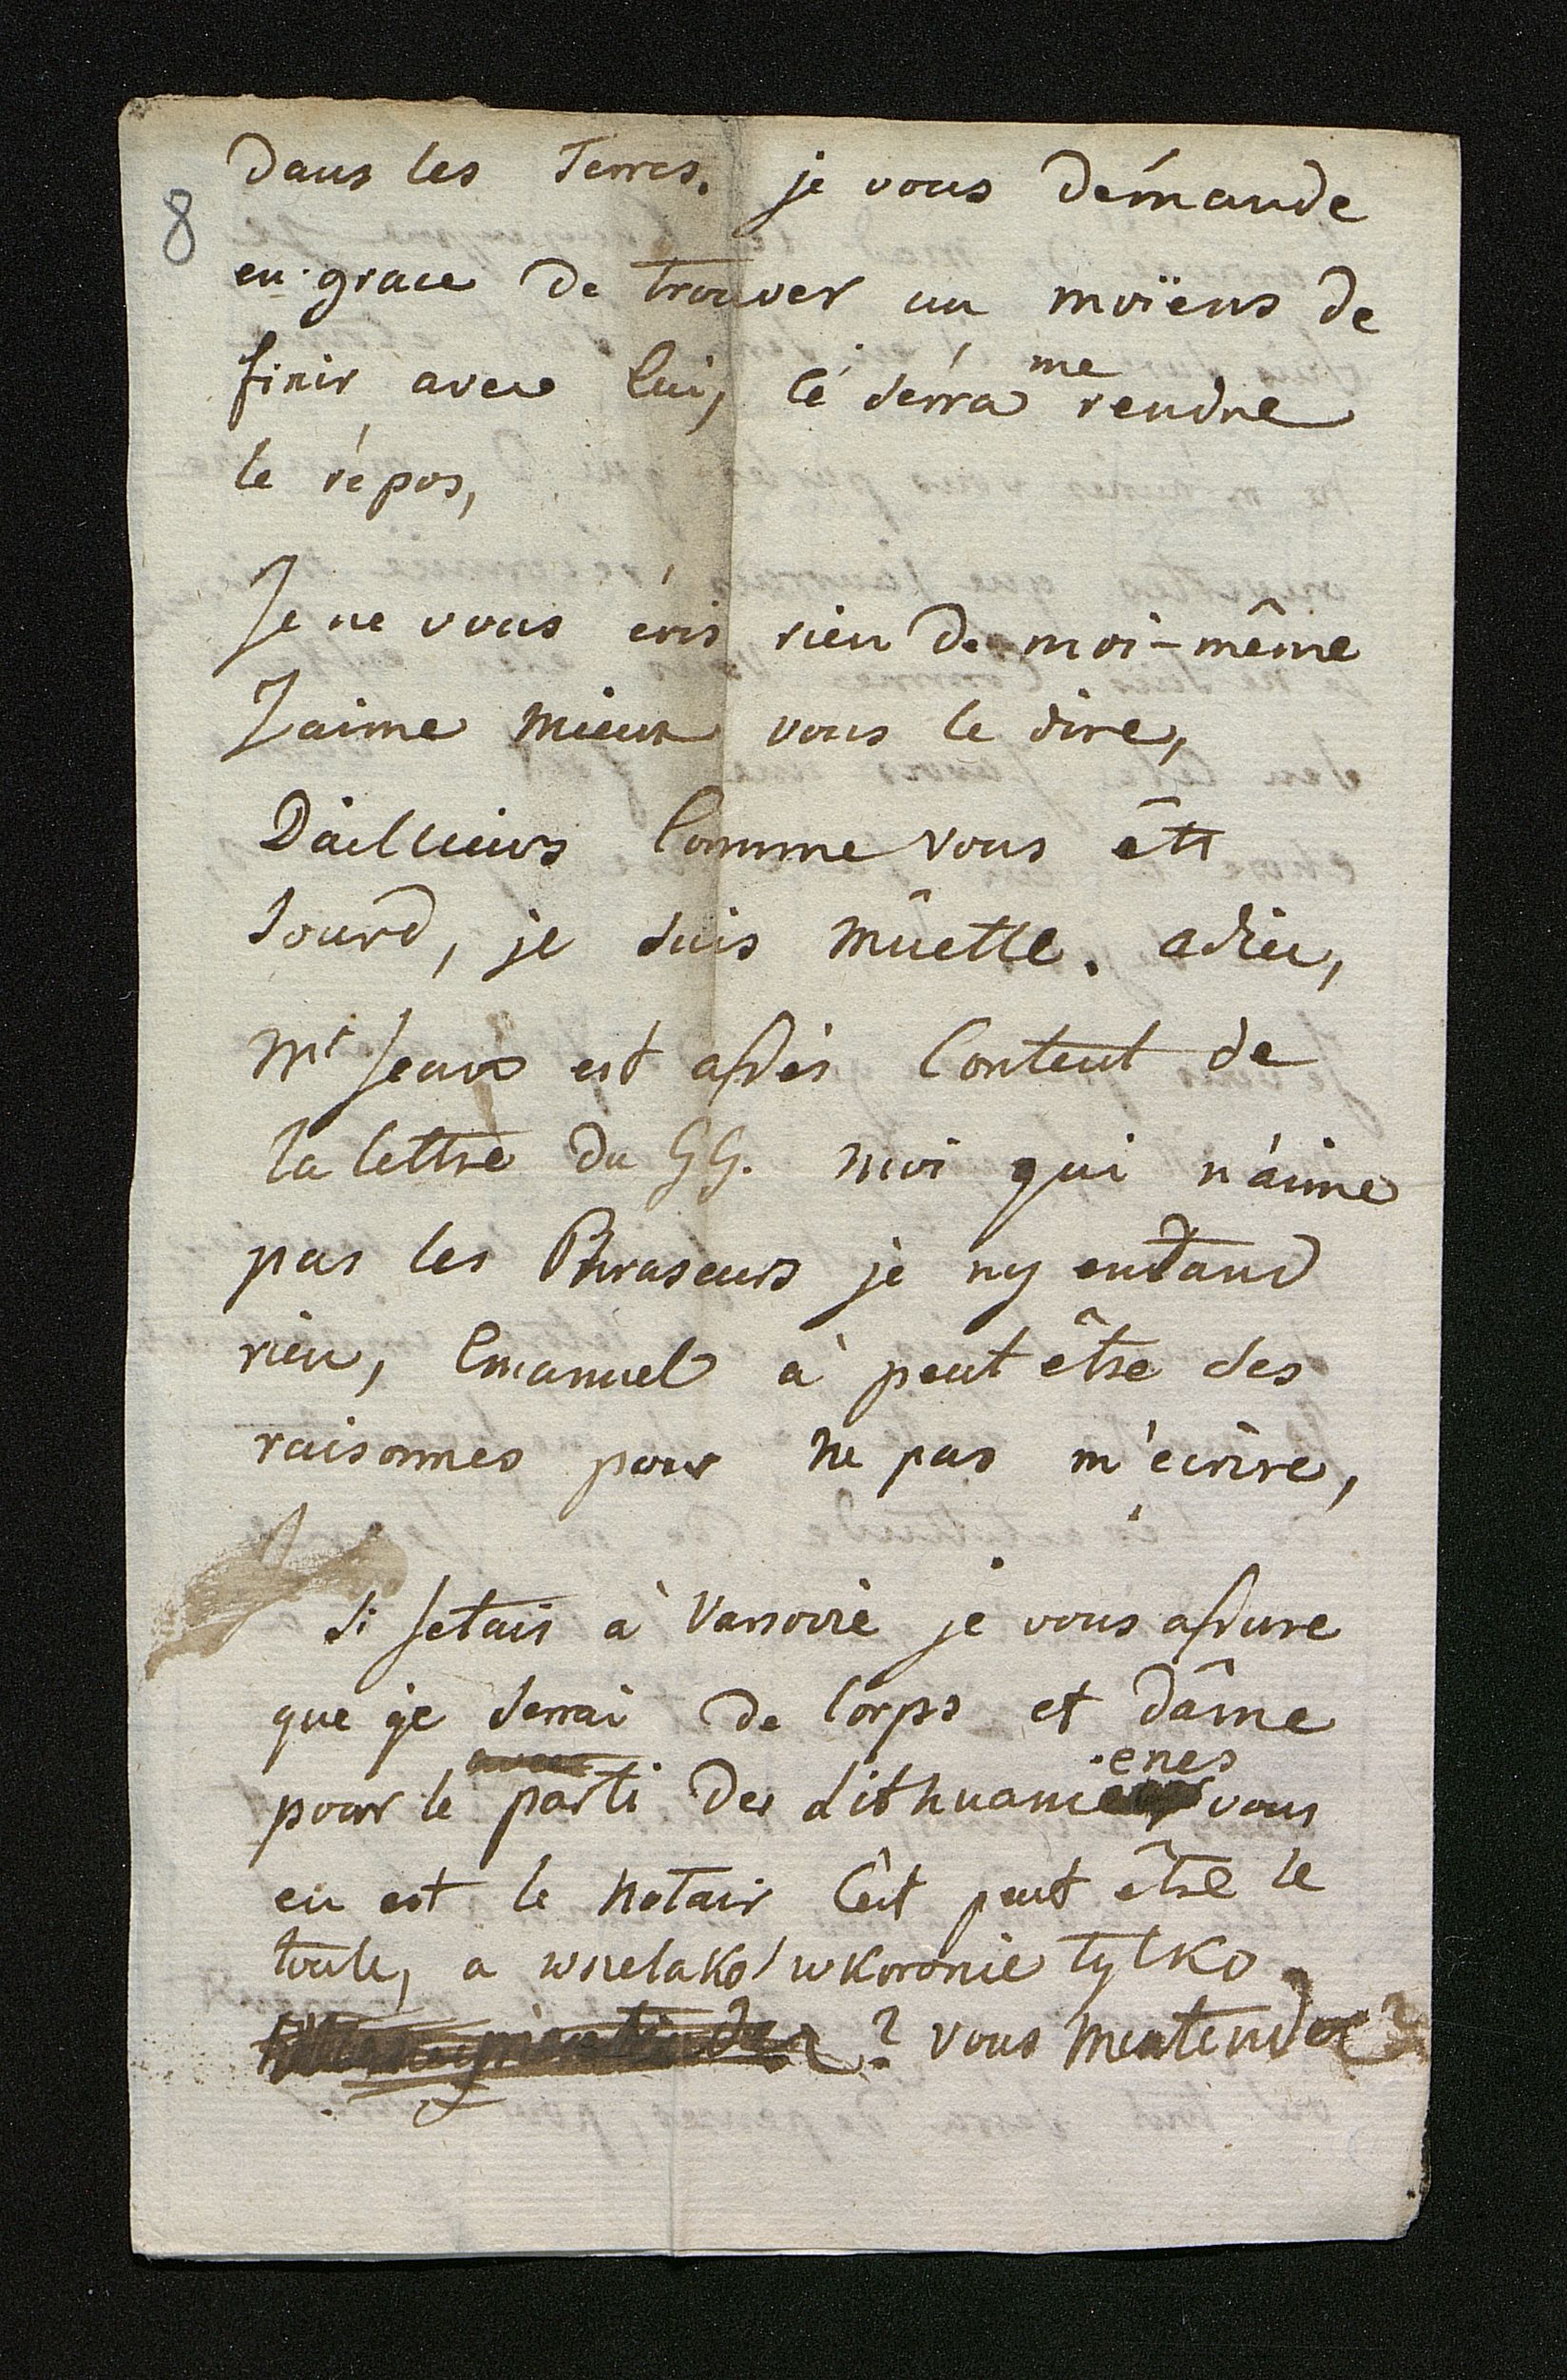 8
Dans les Terres. je vous démande
en grace de trouver un moïens de
finir avec lui, cé sérra me rendre
le répos,
Je ne vous écris rien de moi-même
J'aime mieux vous le dire,
Dàillieurs Comme vous êtt
sourd, je suis mûette. adieu,
Mr Jean est assés Content de
la lettre du GG. moi qui n'áime
pas les Phraseurs je ny entand
rien, Emanuel à peut être des
raisonnes pour ne pas m'ecrire,
si jetais à Varsovie je vous assure
que je serrai de Corps et dâme
pour le parti des Lithuanienes vous
en est le Notair Cèt peut être le
toute, a wszelako w koronie tylko
? vous mentendez?